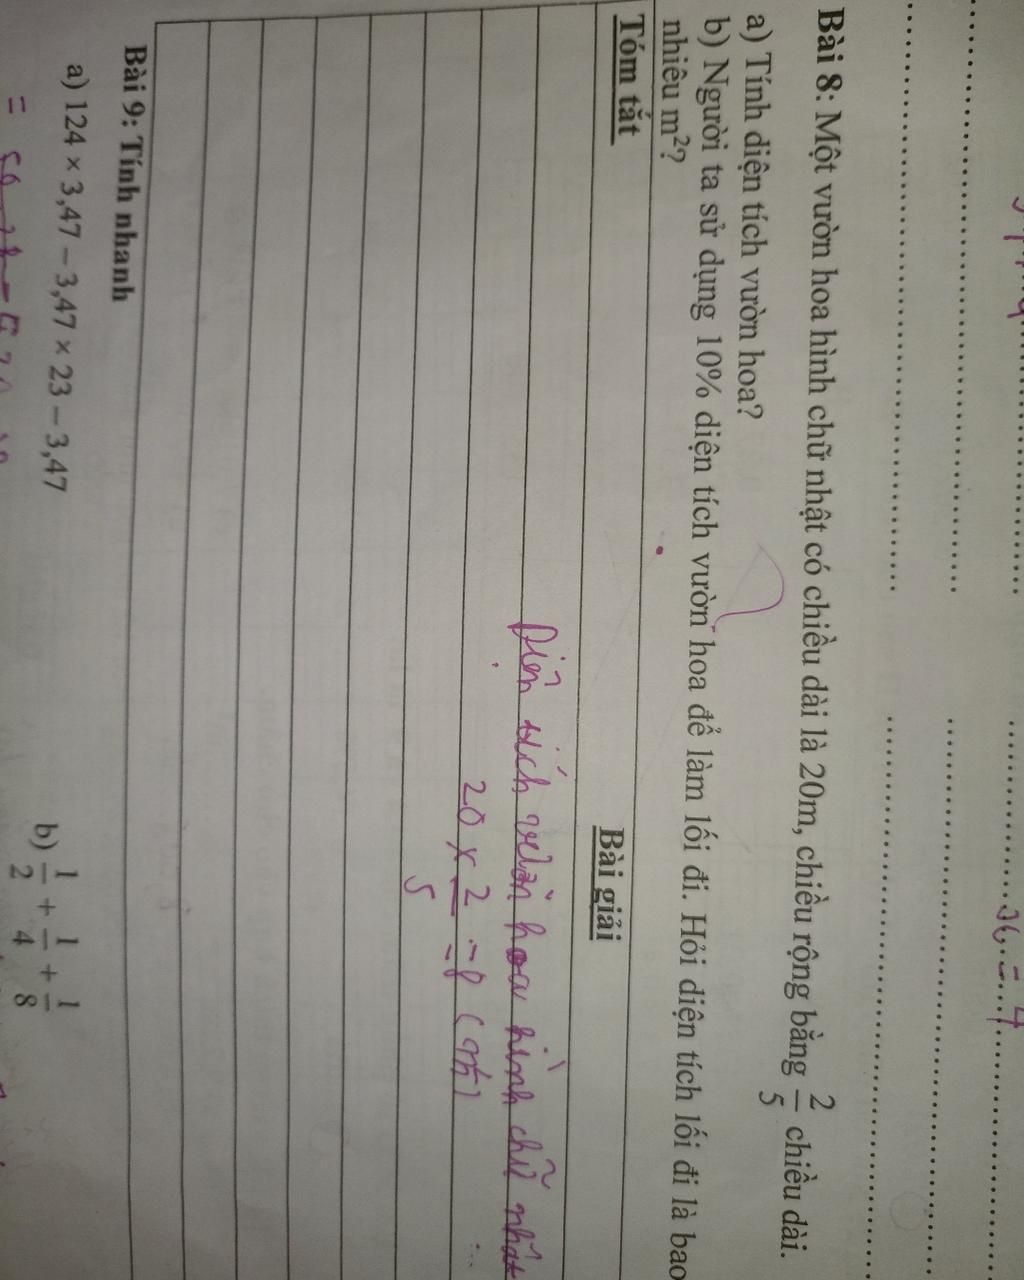 Bài 8: Một vườn hoa hình chữ nhật có chiều dài là 20m, chiều rộng bằng 2/5 chiều dài.
a) Tính diện tích vườn hoa?
b) Người ta sử dụng 10% diện tích vườn hoa để làm lối đi. Hỏi diện tích lối đi là bao
nhiêu m²?
Tóm tắt Bài giải
Diện tích vườn hoa hình chữ nhật
20 x 2/5 = 8 (m)
Bài 9: Tính nhanh
a) 124 × 3,47 – 3,47 × 23 – 3,47 b) 1/2 + 1/4 + 1/8